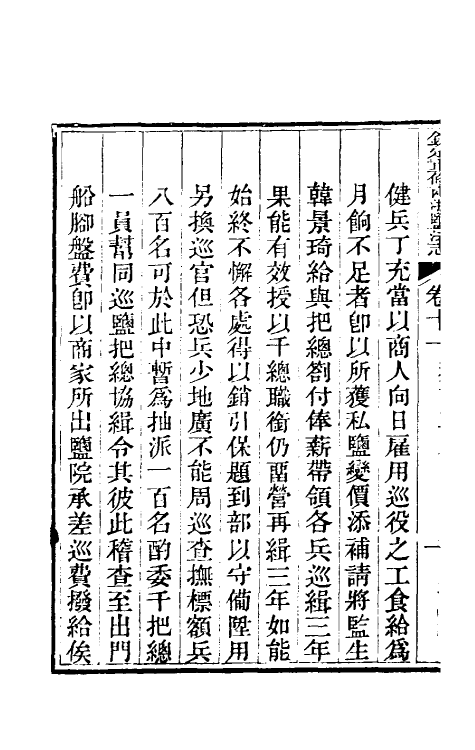 卷十一
健兵丁充當以商人向日雇用巡役之工食給爲
月餉不足者卽以所獲私鹽變價添補請將監生
韓景琦給與把總劄付俸薪帶領各兵巡緝三年
果能有效授以千總職銜仍畱營再緝三年如能
始終不懈各處得以銷引保題到部以守備陞用
另換巡官但恐兵少地廣不能周巡查撫標額兵
八百名可於此中暫爲抽派一百名酌委千把總
一員幫同巡鹽把總協緝令其彼此稽查至出門
船腳盤費卽以商家所出鹽院承差巡費撥給俟